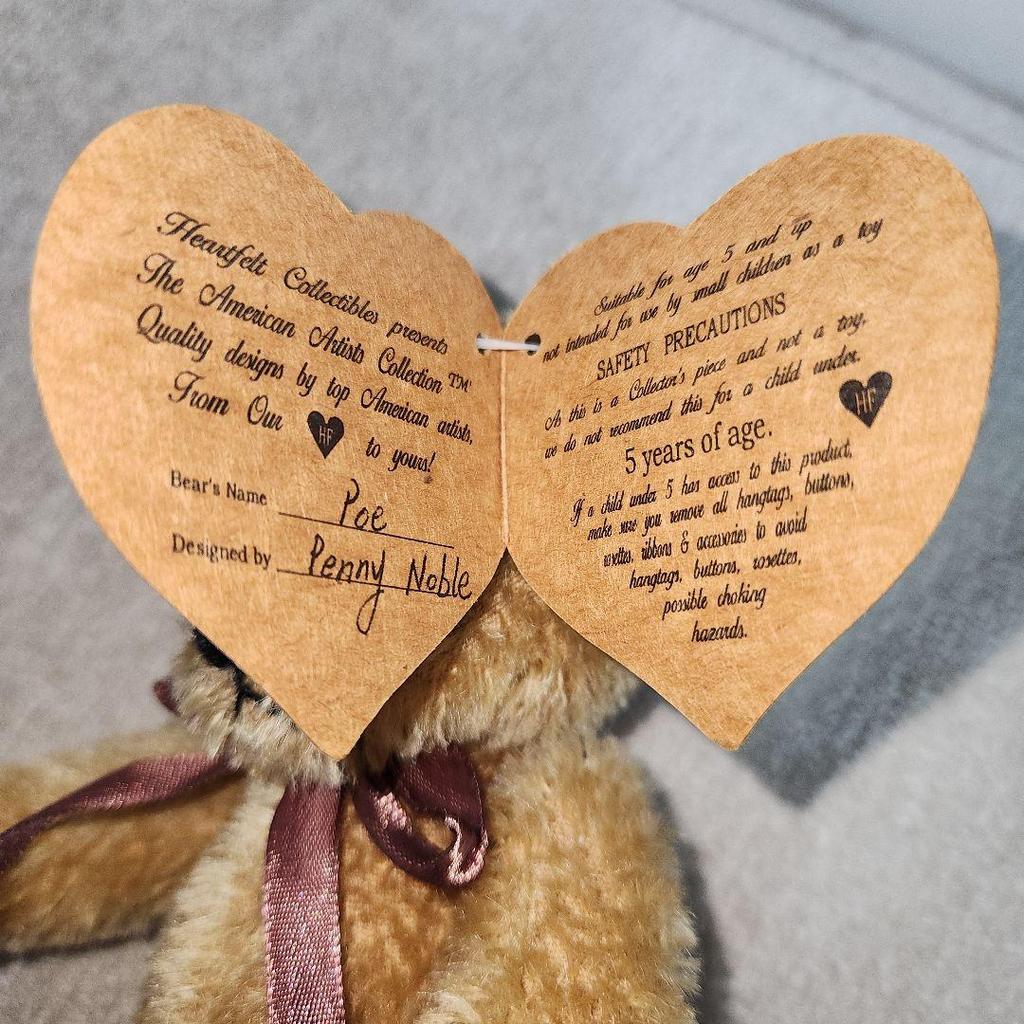 Heartfelt Collectibles presents
The American Artists Collection ™
Quality designs by top American artists,
From Our HF to yours!
Bear's Name Poe
Designed by Penny Noble
Suitable for age 5 and up
not intended for use by small children as a toy
SAFETY PRECAUTIONS
As this is a Collector's piece and not a toy,
we do not recommend this for a child under
5 years of age.
HF
If a child under 5 has access to this product,
make sure you remove all hangtags, buttons,
rosettes, ribbons & accessories to avoid
hangtags, buttons, rosettes,
possible choking
hazards.